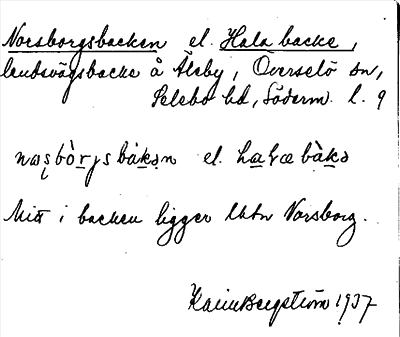 Norsborgsbacken el. Hala backe,
landsvägsbacke å Åleby, Överselö sn,
Selebo hd, Söderm. l. 9
el.
Mitt i backen ligger lht Norsborg.
Karin Bergström 1937